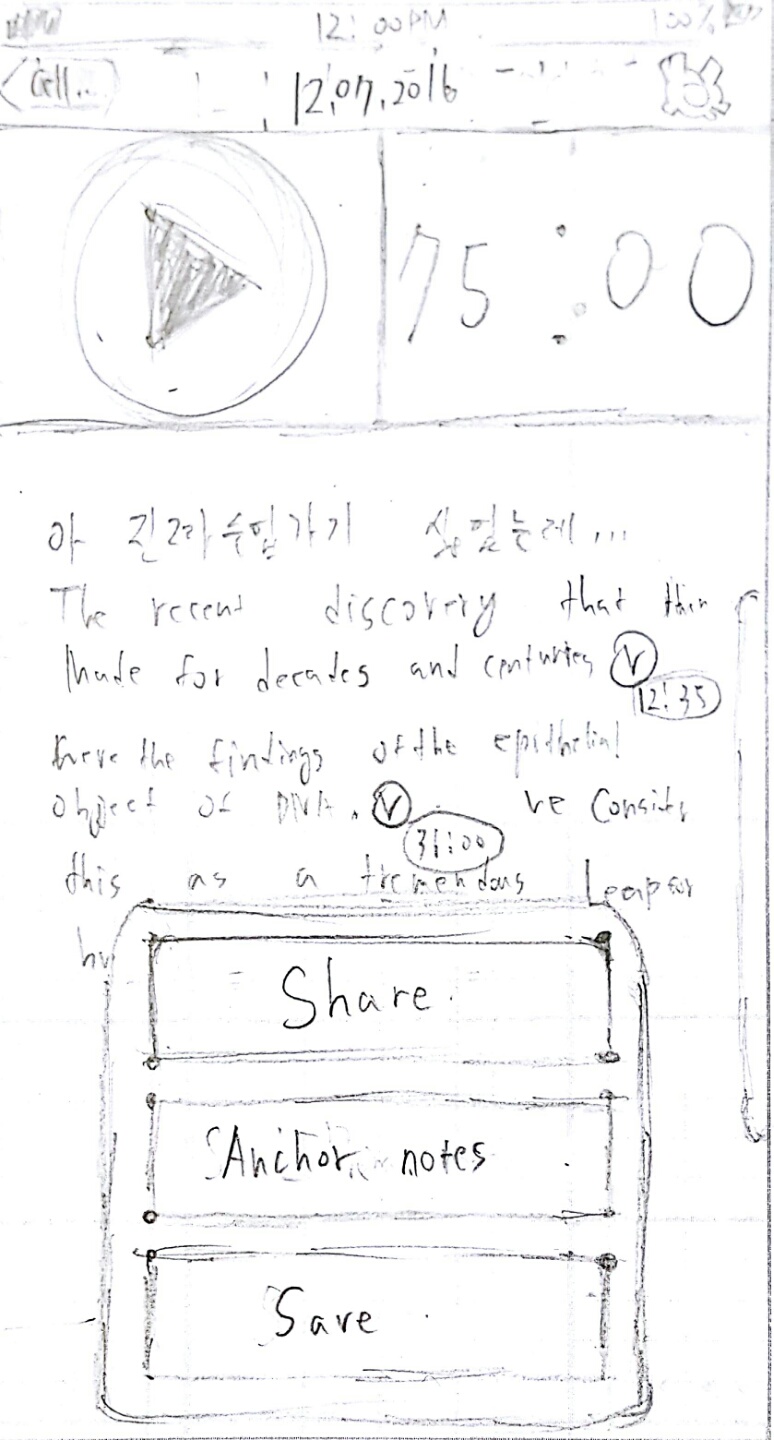 12:00PM 100%
< Cell...
12.07.2016
75:00
아 진짜 수업가기 싫었는데...
The recent discovery that thin
made for decades and centuries V
12:35
were the findings of the epithelial
object of DNA. V we Consider
31:00
this as a tremendous Leap for
hu
Share
Anchor notes
Save